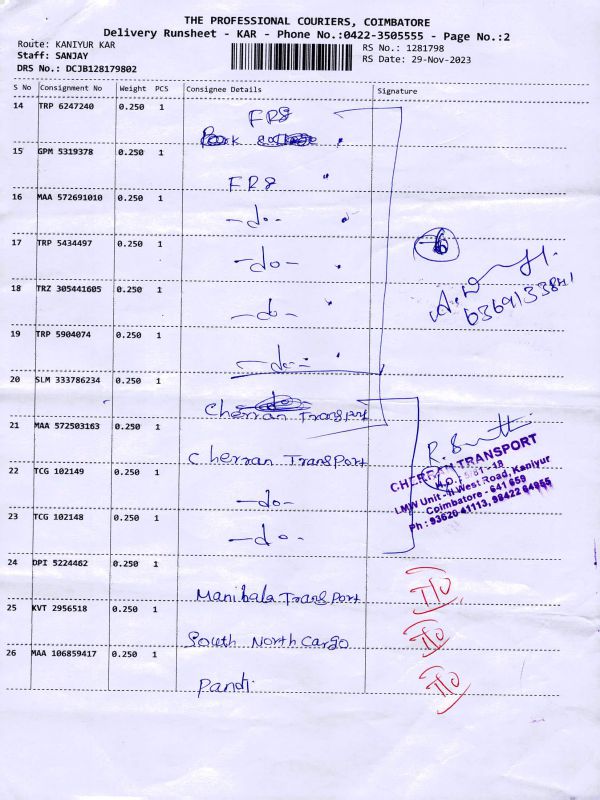 THE PROFESSIONAL COURIERS, COIMBATORE
Delivery Runsheet - KAR - Phone No.:0422-3505555 - Page No.:2
Route: KANIYUR KAR
RS No.: 1281798
Staff: SANJAY
RS Date: 29-Nov-2023
DRS No.: DCJB128179802
S No Consignment No Weight PCS Consignee Details Signature
14 TRP 6247240 0.250 1
FRS
15 GPM 5319378 0.250 1
FRS "
16 MAA 572691010 0.250 1
-do- "
17 TRP 5434497 0.250 1
-do- "
18 TRZ 305441605 0.250 1
-do- "
19 TRP 5904074 0.250 1
-do- "
20 SLM 333786234 0.250 1
Cherran Transport
21 MAA 572503163 0.250 1
Cherran Transport
22 TCG 102149 0.250 1
-do-
23 TCG 102148 0.250 1
-do-
24 DPI 5224462 0.250 1
Manibala Transport
25 KVT 2956518 0.250 1
South North Cargo
26 MAA 106859417 0.250 1
Pandi
6
6369133841
CHERRAN TRANSPORT
LMW Unit - II West Road, Kaniyur
Coimbatore - 641 659
Ph : 93620 41113, 98422 04955
T/O
T/O
T/O